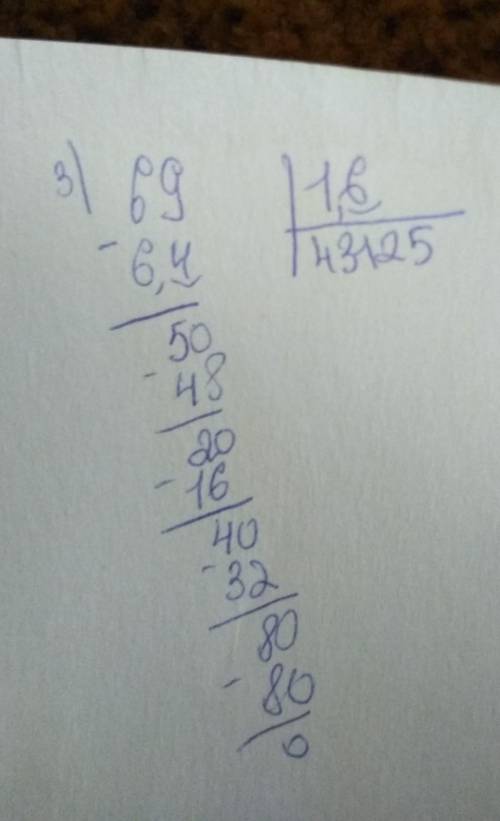 3) 69 1,6
- 6,4 43125
50
- 48
20
- 16
40
- 32
80
- 80
0